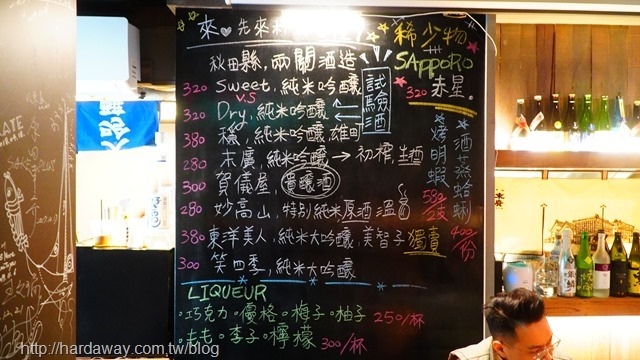 來♡先來
稀少物
秋田縣,兩關酒造
SAPPORO
320 赤星.
320 Sweet,純米吟釀
V.S
試驗酒
320 Dry,純米吟釀
380 穗,純米吟釀雄町
280 末廣,純米吟釀→初搾,生酒
300 賀儀屋,貴釀酒
280 妙高山,特別純米原酒溫
380 東洋美人,純米大吟釀,美智子獨賣
300 笑四季,純米大吟釀
烤明蝦
58g/2支
酒蒸蛤蜊
400/份
LIQUEUR
巧克力・優格・梅子・柚子 250/杯
・もも・李子・檸檬 300/杯
http://hardaway.com.tw/blog